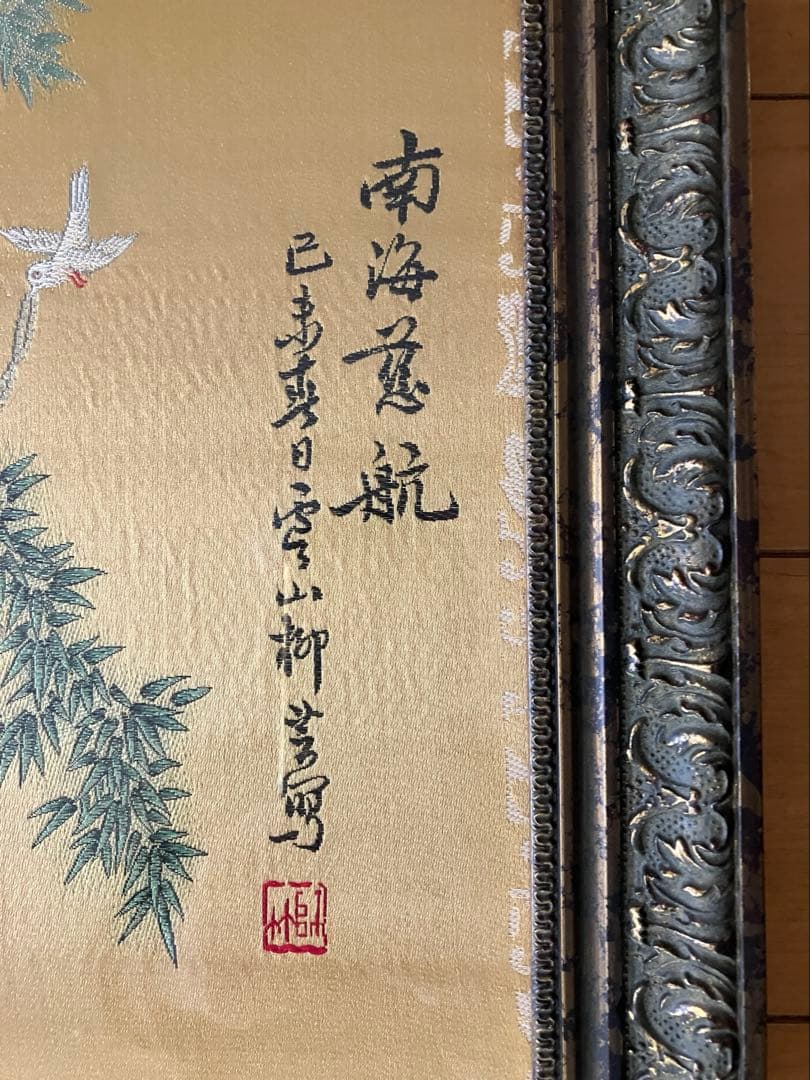 南海慈航
己未春日雲山柳芸寫